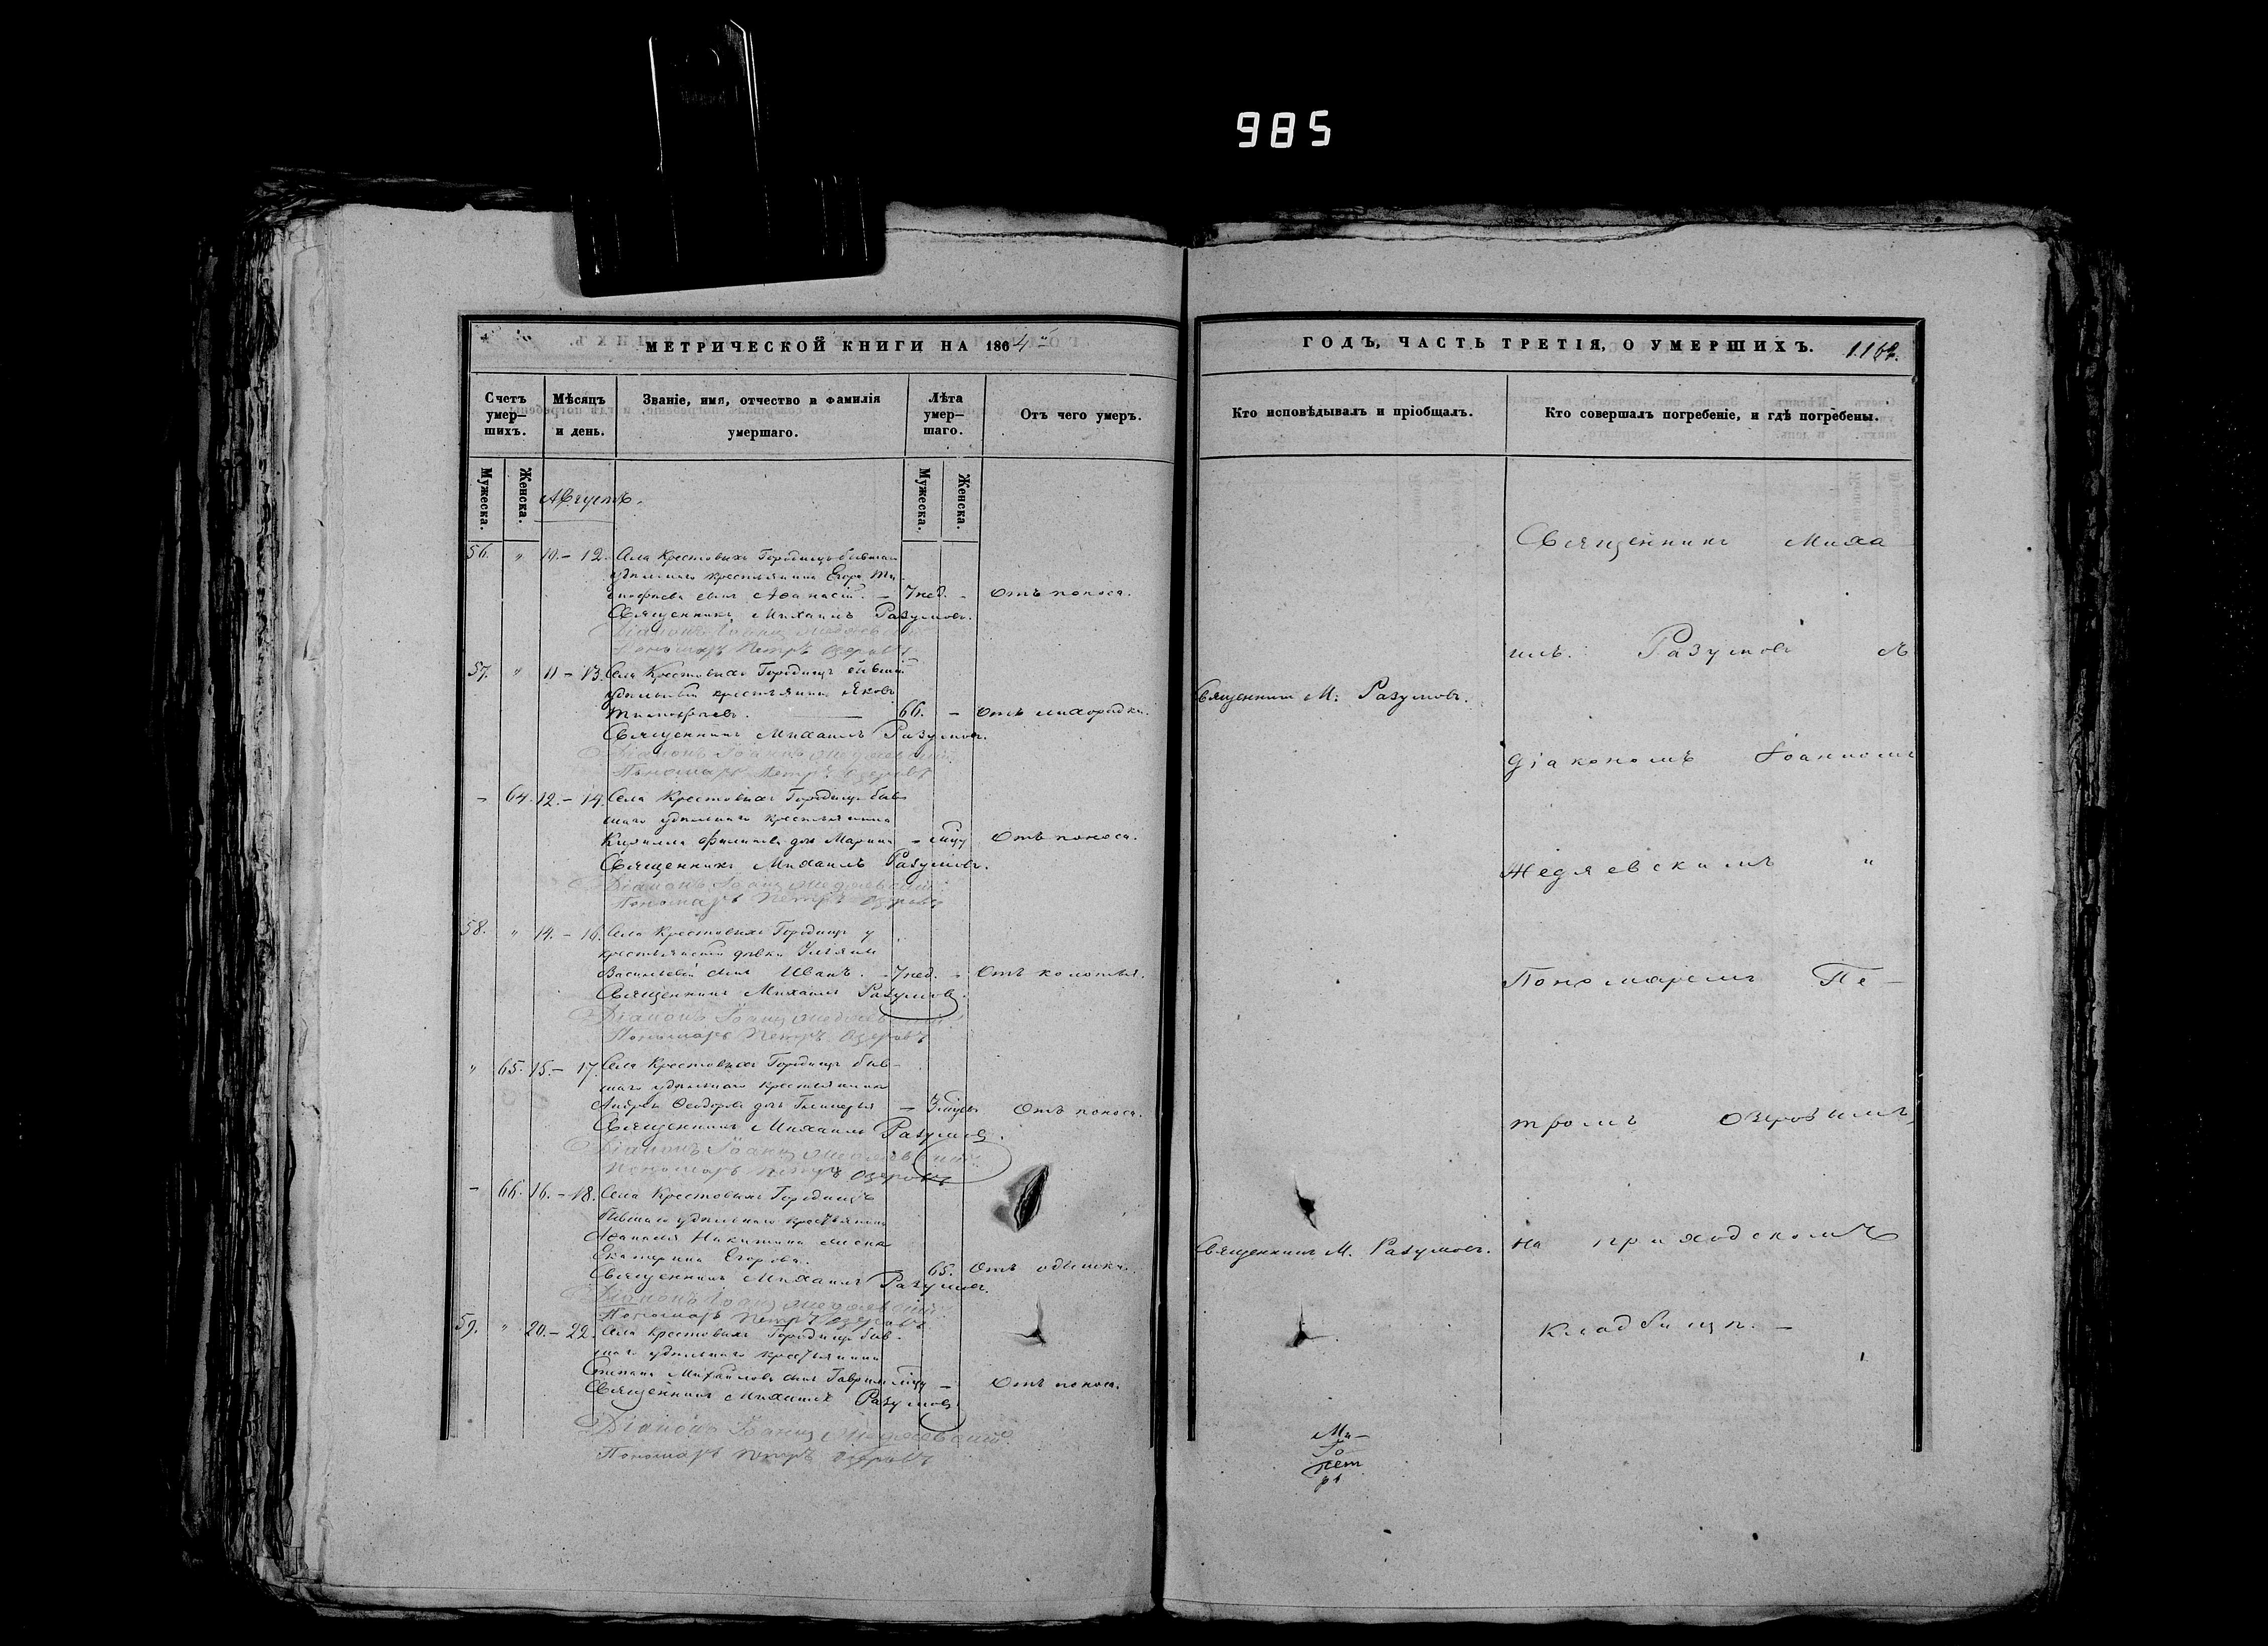 985
МЕТРИЧЕСКОЙ КНИГИ НА 1864
ГОДЪ, ЧАСТЬ ТРЕТІЯ, О УМЕРШИХЪ.
Счетъ умер-шихъ.
Мѣсяцъ и день.
Званіе, имя, отчество и фамилія умершаго.
Лѣта умер-шаго.
Отъ чего умеръ.
Кто исповѣдывалъ и пріобщалъ.
Кто совершалъ погребеніе, и гдѣ погребены.
Мужеска.
Женска.
Мужеска.
Женска.
Августъ.
56. " 10.- 12. Села Крестовыхъ Городищь бывшаго
удѣльнаго крестьянина Егора Ти-
мофѣева сынъ Аѳанасій. - 7 нед. - Отъ поноса.
Священникъ Михаилъ Разумовъ.
Діаконъ Іоаннъ
Пономарь Петръ Озеровъ
57. " 11 - 13. Села Крестовыхъ Городищь бывшій
удѣльный крестьянинъ Яковъ
Тимофѣевъ. 66. - Отъ лихорадки.
Священникъ М. Разумовъ.
Священникъ Михаилъ Разумовъ.
Діаконъ Іоаннъ
Пономарь Петръ Озеровъ
- 64. 12.- 14. Села Крестовыхъ Городищь быв-
шаго удѣльнаго крестьянина
Кирилла Филипова дочь Марина - Отъ поноса.
Священникъ Михаилъ Разумовъ.
Діаконъ Іоаннъ
Пономарь Петръ Озеровъ
58. " 14.- 16. Села Крестовыхъ Городищь у
крестьянской дѣвки Ульяны
Васильевой сынъ Иванъ. - 7 нед. - Отъ колотья.
Священникъ Михаилъ Разумовъ.
Діаконъ Іоаннъ
Пономарь Петръ Озеровъ
" 65. 15.- 17. Села Крестовыхъ Городищь быв-
шаго удѣльнаго крестьянина
Андрея Ѳеодорова дочь Гликерья - 3 Отъ поноса.
Священникъ Михаилъ Разумовъ.
Діаконъ Іоаннъ
Пономарь Петръ Озеровъ
- 66. 16.- 18. Села Крестовыхъ Городищь
бывшаго удѣльнаго крестьянина
Аѳанасія Никитина жена
Екатерина Егорова. 65. Отъ одышки.
Священникъ М. Разумовъ.
Священникъ Михаилъ Разумовъ.
Діаконъ Іоаннъ
Пономарь Петръ Озеровъ
59. " 20.- 22. Села Крестовыхъ Городищь быв-
шаго удѣльнаго крестьянина
Степана Михайлова сынъ Гавріилъ - Отъ поноса.
Священникъ Михаилъ Разумовъ
Діаконъ Іоаннъ
Пономарь Петръ Озеровъ
Священникъ Миха
илъ Разумовъ съ
Діакономъ Іоанномъ
"
Пономаремъ Пе-
тромъ Озеровымъ,
на приходскомъ
кладбищѣ. -